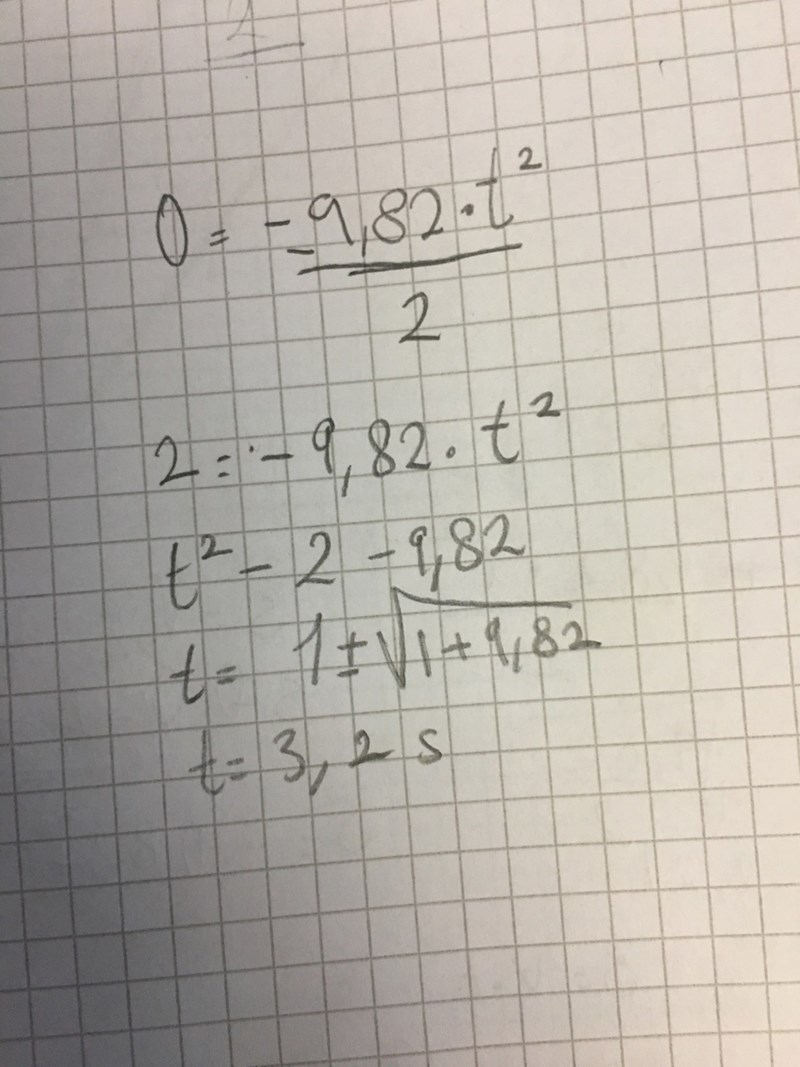 1
0 = -9,82·t²
2
2 = -9,82·t²
t² - 2 - 9,82
t = 1±√1+9,82
t = 3,2 s